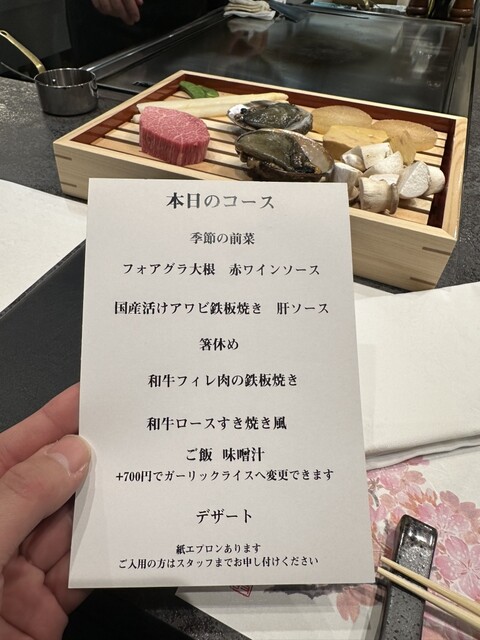 本日のコース
季節の前菜
フォアグラ大根 赤ワインソース
国産活けアワビ鉄板焼き 肝ソース
箸休め
和牛フィレ肉の鉄板焼き
和牛ロースすき焼き風
ご飯 味噌汁
+700円でガーリックライスへ変更できます
デザート
紙エプロンあります
ご入用の方はスタッフまでお申し付けください